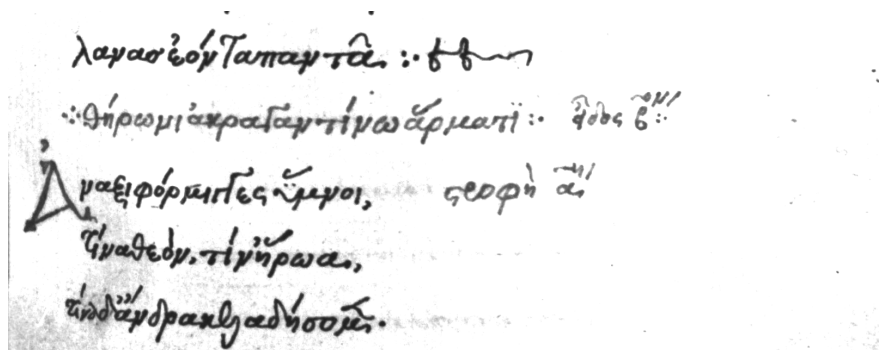 λανας ἐόντα παντᾶ. :
∴ θήρωνι ἀκραγαντίνω ἅρματι :· β :·
Ἀναξιφόρμιγγες ὕμνοι, στροφὴ α
τίνα θεὸν, τίν' ἥρωα,
τίνα δ' ἄνδρα κελαδήσομεν.